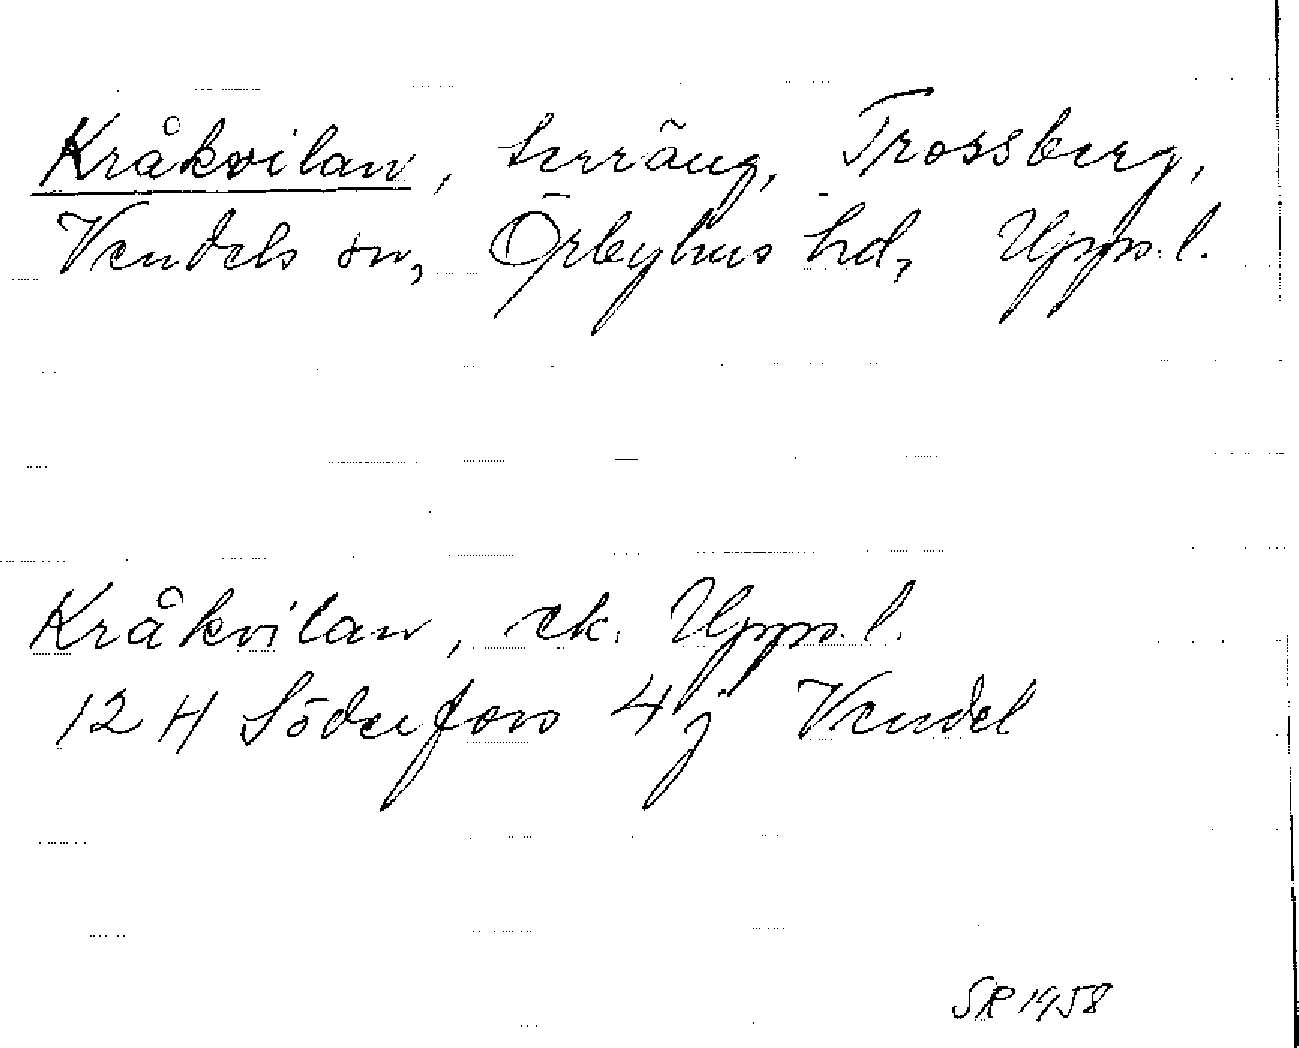 Kråkvilan, terräng, Trossberg,
Vendels sn, Örbyhus hd, Uppl.
Kråkvilan, ek. Uppl.
12 H Söderfors 4 j Vendel
SR 1958